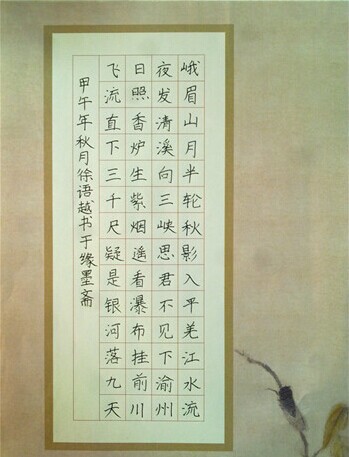 峨眉山月半轮秋影入平羌江水流
夜发清溪向三峡思君不见下渝州
日照香炉生紫烟遥看瀑布挂前川
飞流直下三千尺疑是银河落九天
甲午年秋月徐语越书于缘墨斋